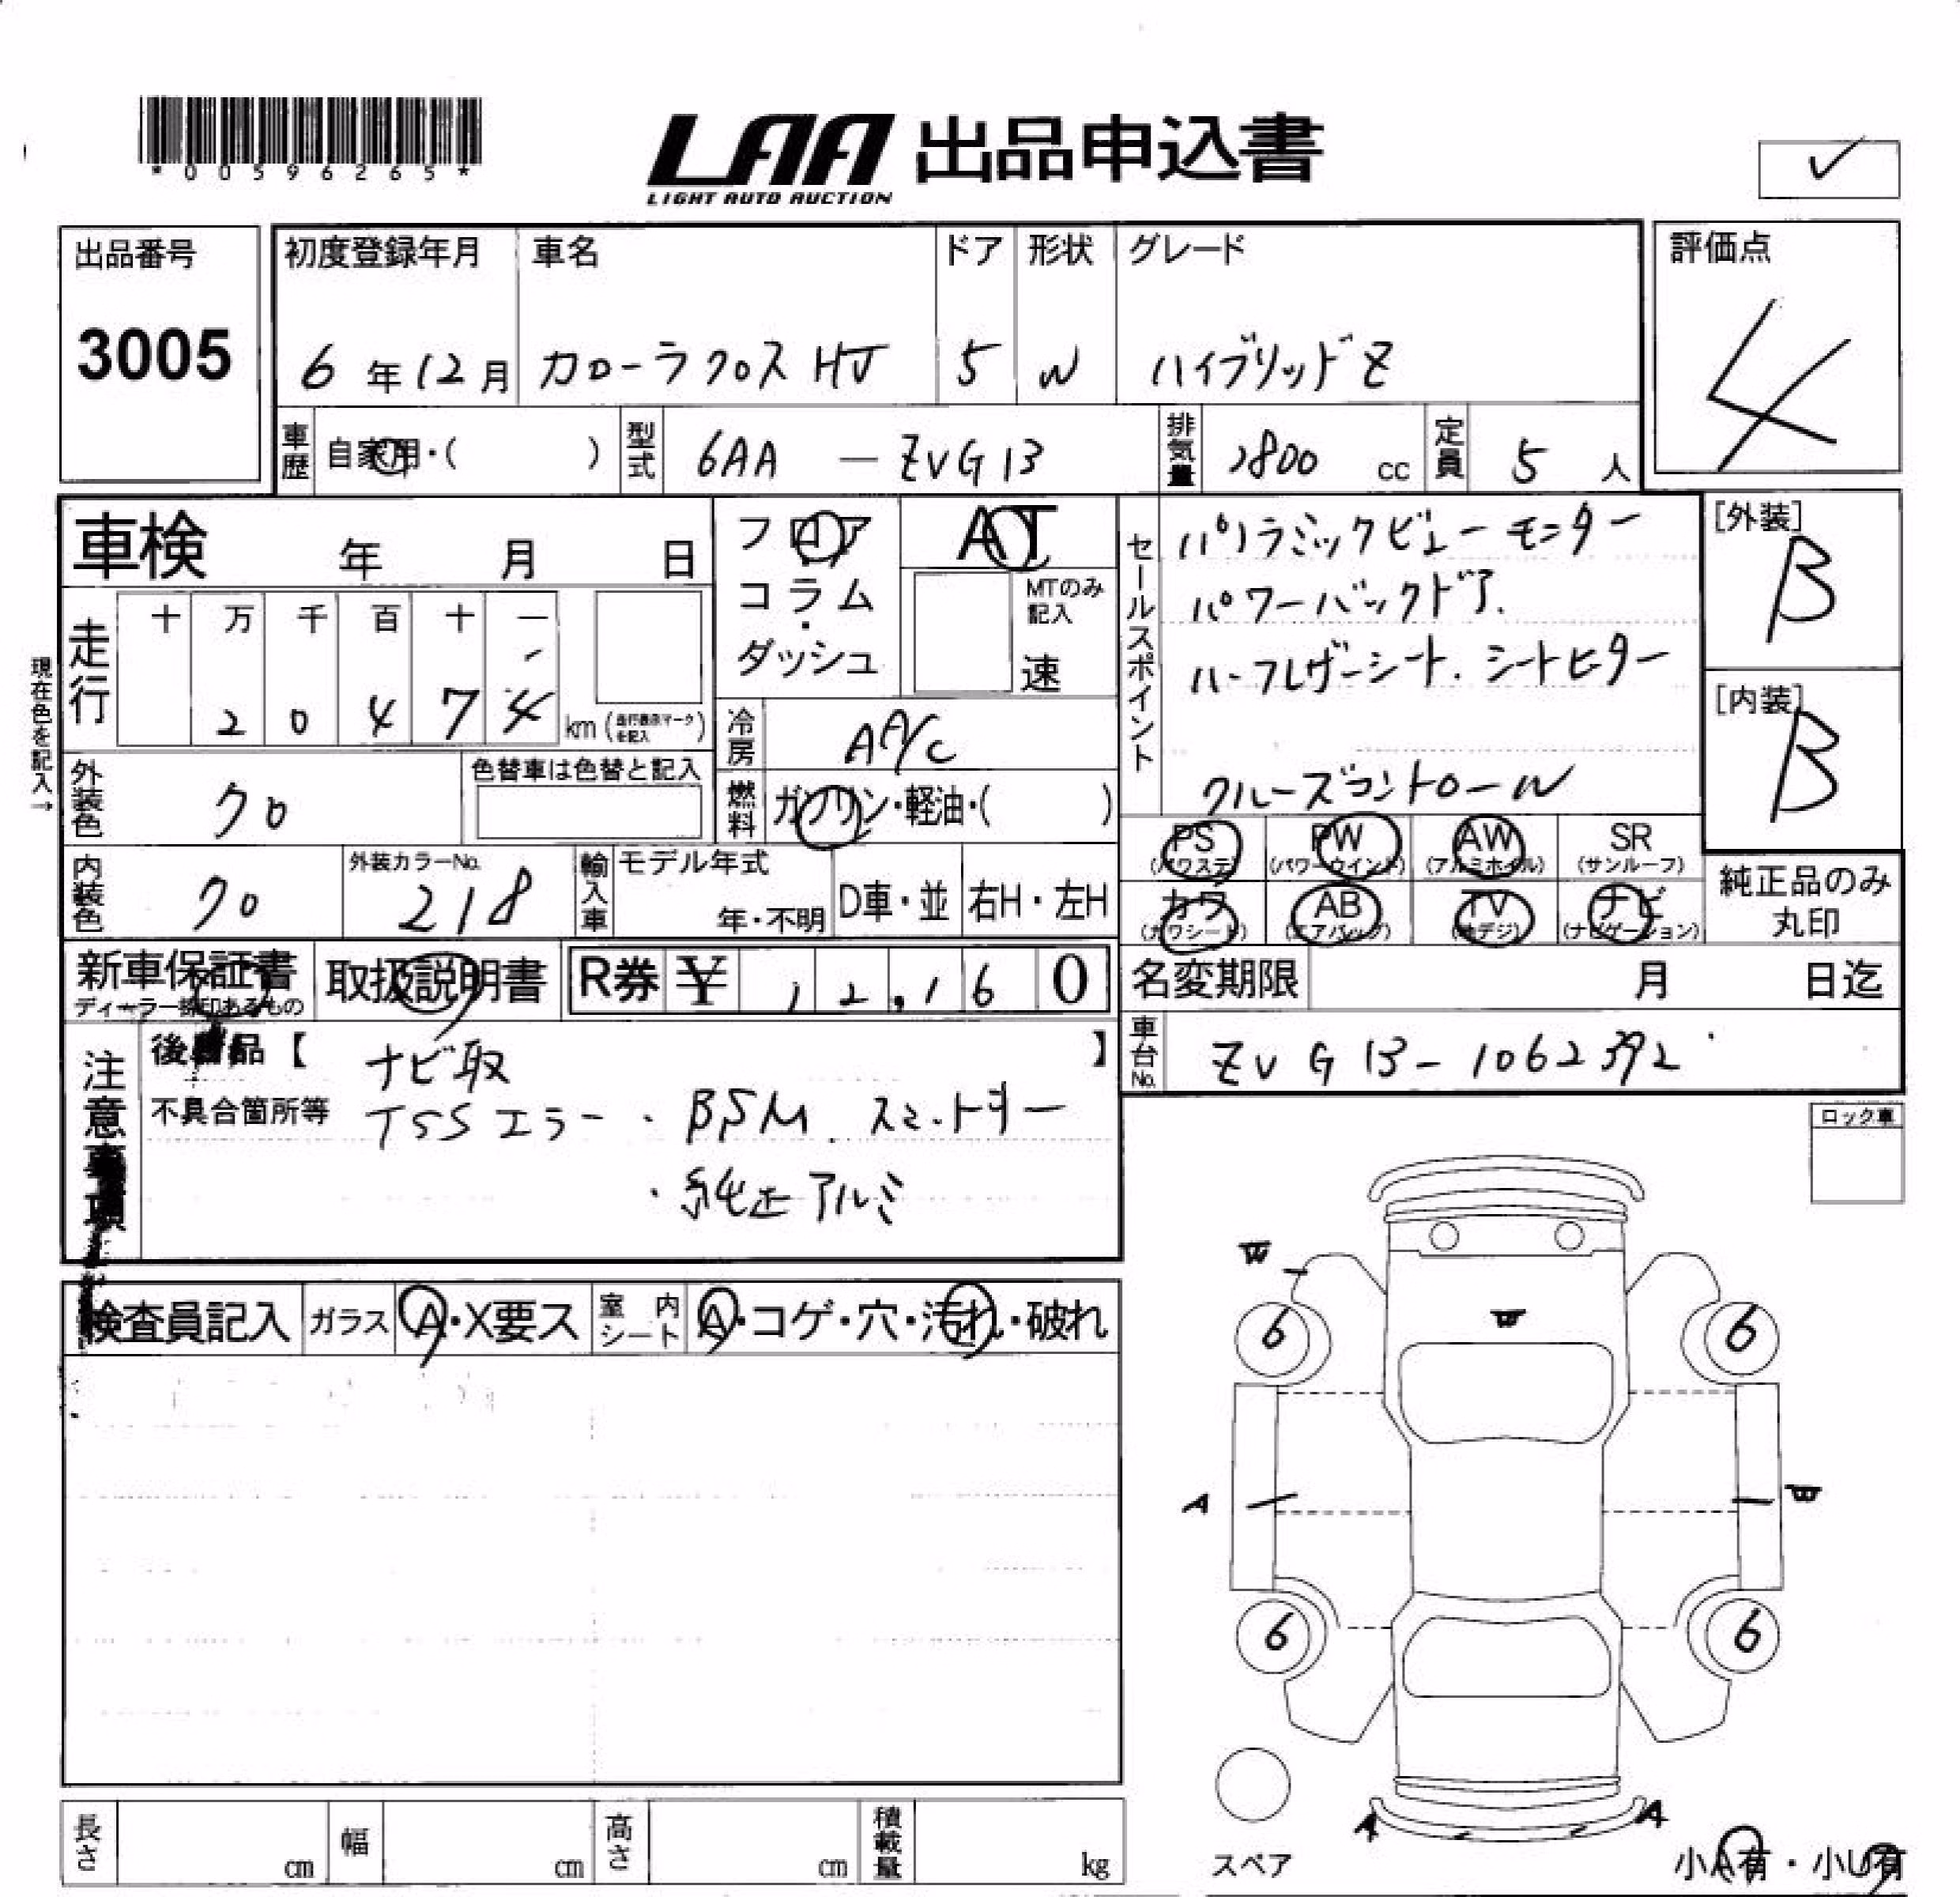 *00596265*
LAA 出品申込書
LIGHT AUTO AUCTION
✓
出品番号
3005
初度登録年月
6年12月
車名
カローラクロス HV
ドア
5
形状
W
グレード
ハイブリッドZ
評価点
4
車歴
自家用・( )
型式
6AA — ZVG13
排気量
1800 cc
定員
5人
車検 年 月 日
フロア
コラム
・
ダッシュ
AT
MTのみ記入
速
セールスポイント
パノラミックビューモニター
パワーバックドア.
ハーフレザーシート. シートヒーター
クルーズコントロール
[外装]
B
[内装]
B
現在色を記入→
走行
十 万 千 百 十 一
2 0 4 7 4
km (走行表示マークを記入)
冷房
AA/C
外装色
クロ
色替車は色替と記入
燃料
ガソリン・軽油・( )
PS (パワステ)
PW (パワーウインド)
AW (アルミホイル)
SR (サンルーフ)
カワ (カワシート)
AB (エアバック)
TV (地デジ)
ナビ (ナビゲーション)
純正品のみ
丸印
内装色
クロ
外装カラーNo.
218
輸入車
モデル年式
年・不明
D車・並
右H・左H
新車保証書
ディーラー捺印あるもの
取扱説明書
R券 ¥ 12,160
名変期限 月 日迄
車台No.
ZVG13-1062392
注意事項
後日品【 ナビ取 】
不具合箇所等
TSSエラー ・BSM. スマートキー
・純正アルミ
ロック車
検査員記入
ガラス
A・X要ス
室内シート
A・コゲ・穴・汚れ・破れ
W
W
6
6
A
W
6
6
A
A
スペア
小A有・小U有
長さ cm
幅 cm
高さ cm
積載量 kg